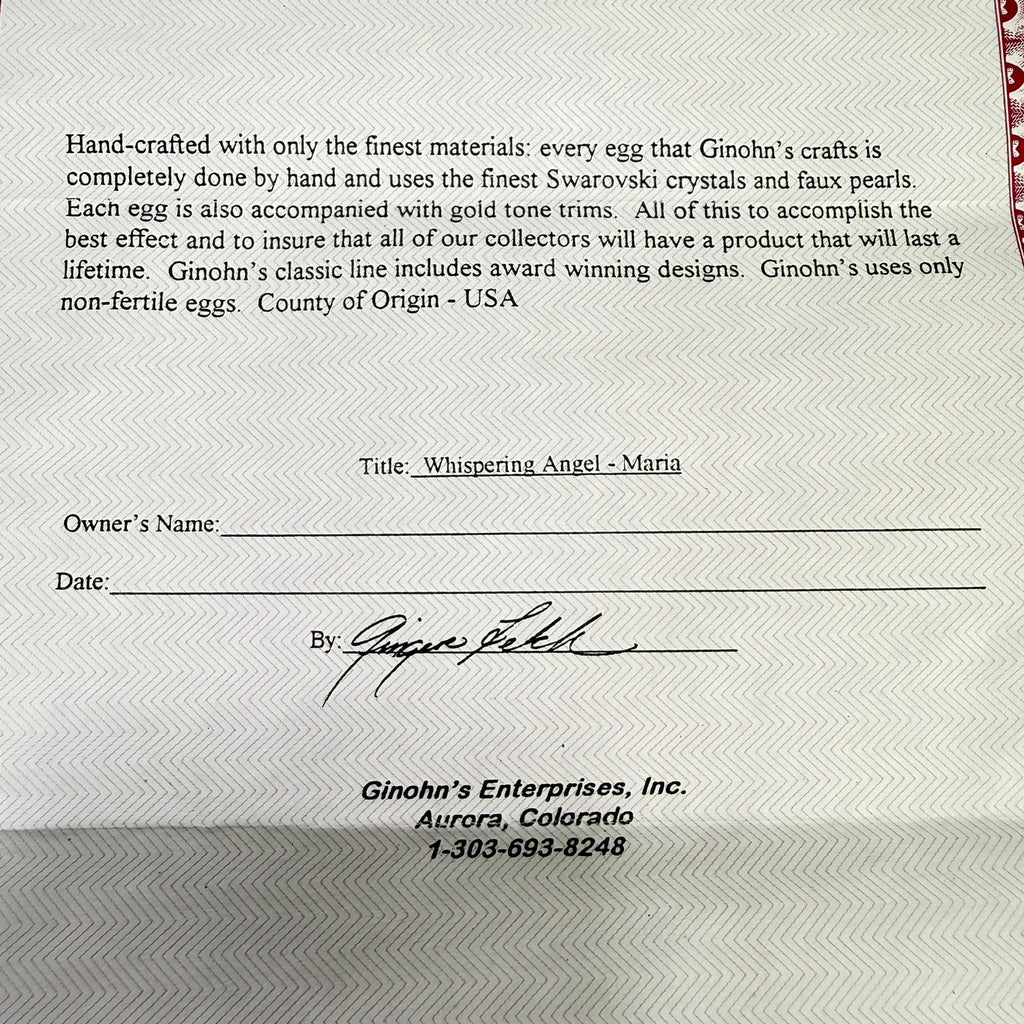 Hand-crafted with only the finest materials: every egg that Ginohn's crafts is
completely done by hand and uses the finest Swarovski crystals and faux pearls.
Each egg is also accompanied with gold tone trims. All of this to accomplish the
best effect and to insure that all of our collectors will have a product that will last a
lifetime. Ginohn's classic line includes award winning designs. Ginohn's uses only
non-fertile eggs. County of Origin - USA
Title: Whispering Angel - Maria
Owner's Name:
Date:
By: Ginger
Ginohn's Enterprises, Inc.
Aurora, Colorado
1-303-693-8248